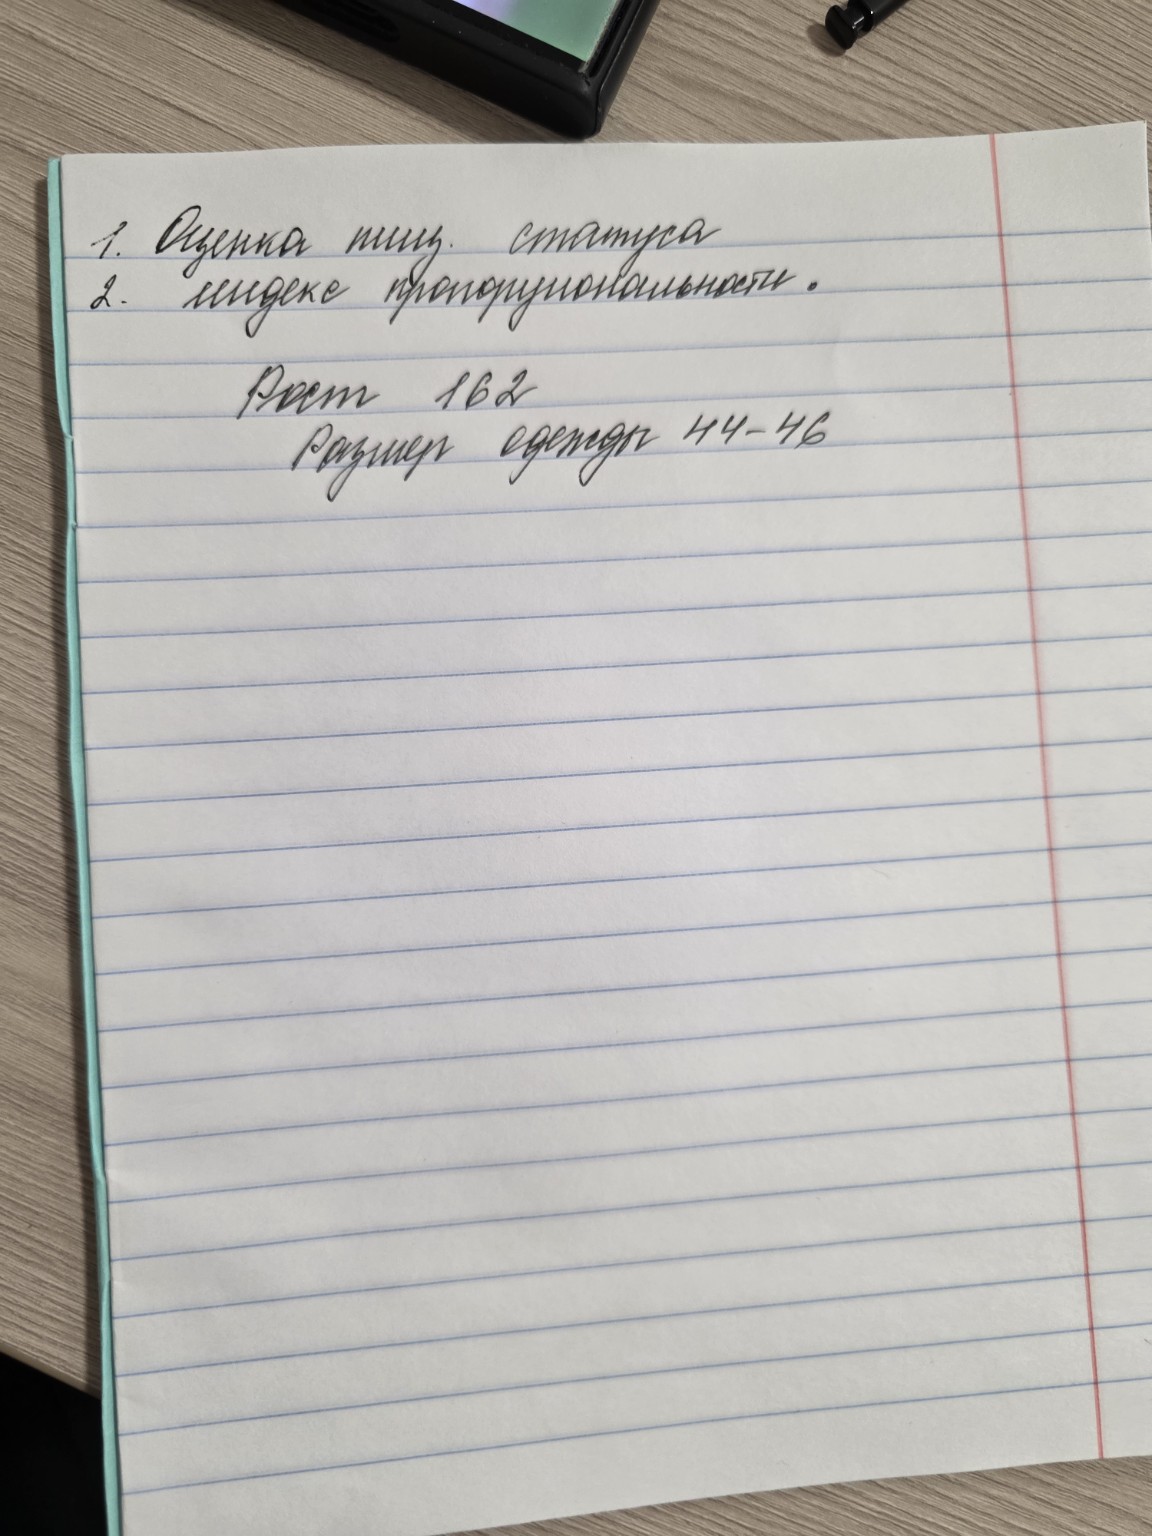 1. Оценка пищ. статуса
2. индекс пропорциональности.
Рост 162
Размер одежды 44-46